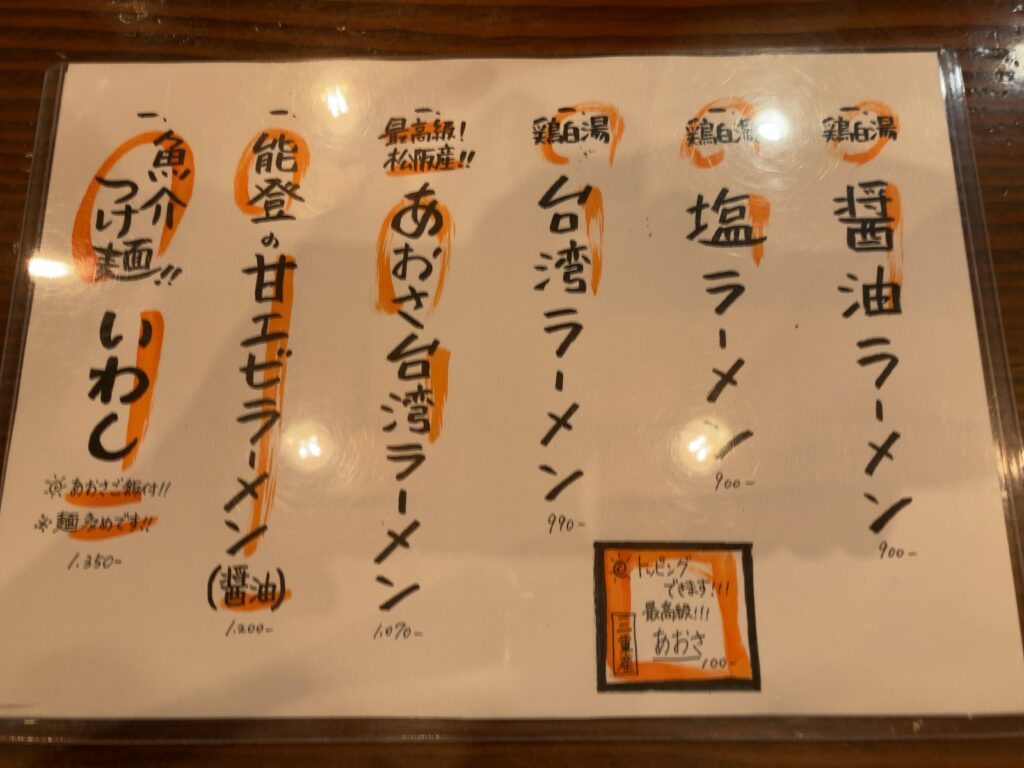 一、
鶏白湯
醤油ラーメン
900-
一、
鶏白湯
塩ラーメン
900-
一、
鶏白湯
台湾ラーメン
990-
一、
最高級!
松阪産!!
あおさ台湾ラーメン
1.090-
一、
能登の甘エビラーメン
(醤油)
1.200-
一、
魚介
つけ麺!!
いわし
※あおさご飯付!!
※麺多めです!!
1.350-
トッピング
できます!!!
最高級!!!
三重産
あおさ
100-